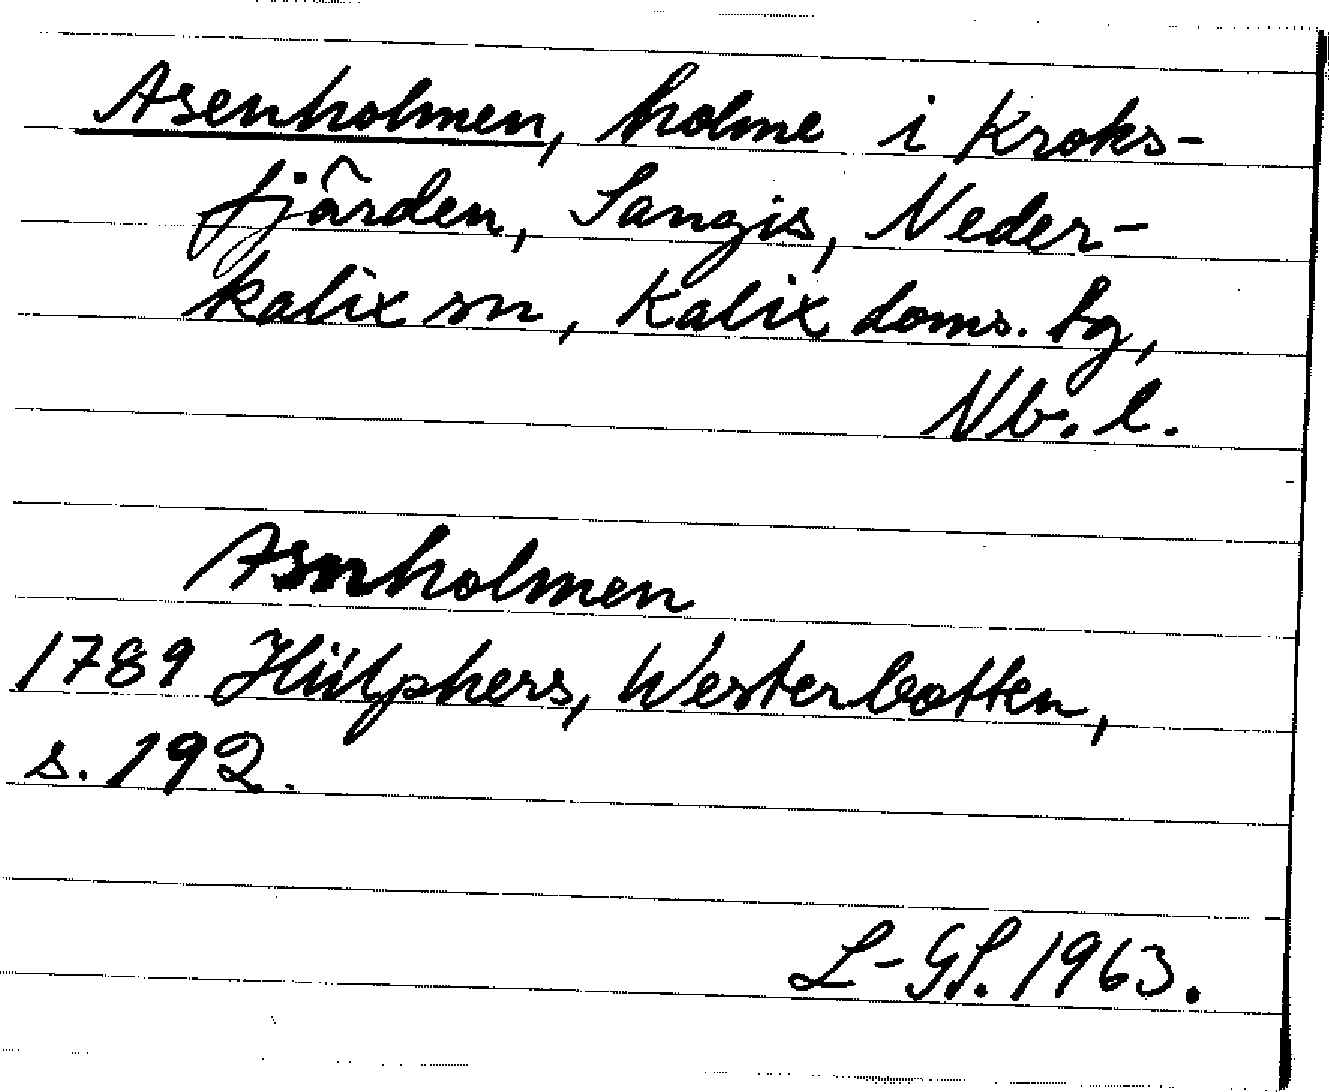 Asenholmen, holme i Kroks-
fjärden, Sangis, Neder-
kalix sn, Kalix doms. tg,
Nb. l.
Asnholmen
1789 Hülphers, Westerbotten,
s. 192.
L-GS. 1963.